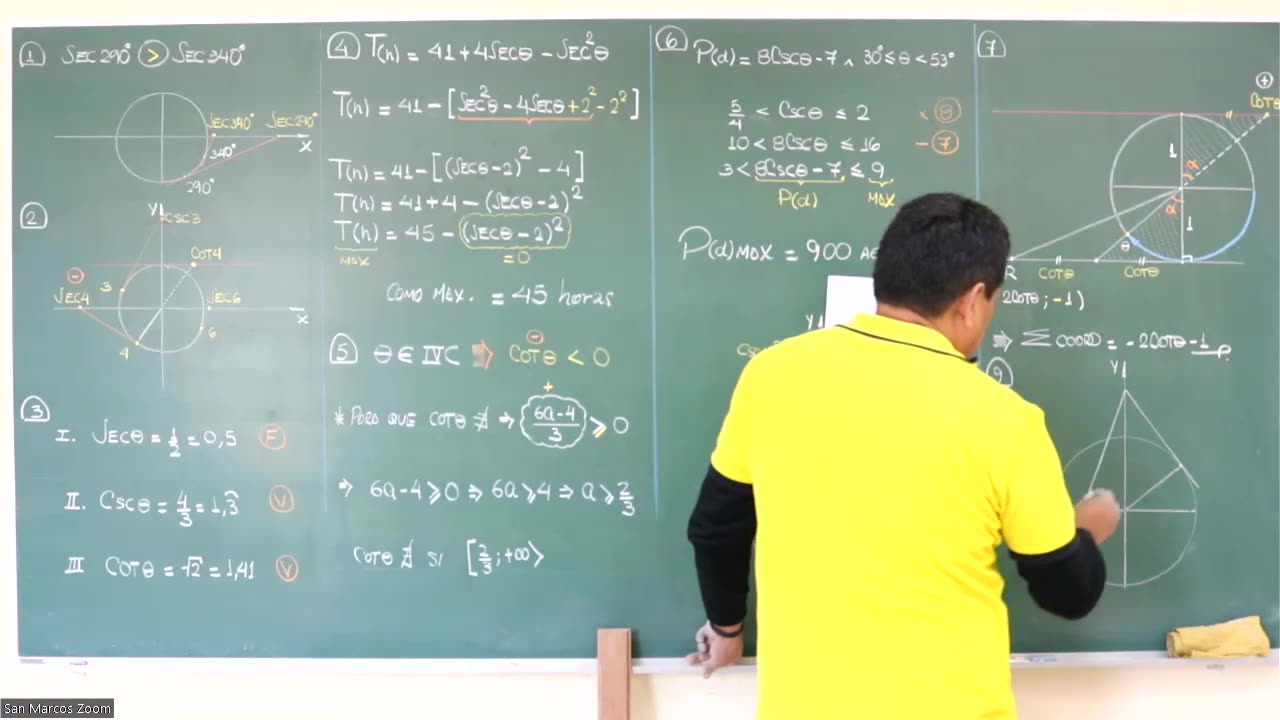 1 SEC290° > SEC340°
SEC340° SEC290°
340° X
290°
2 Y CSC3
COT4
⊖
SEC4 3 SEC6
X
4 6
3
I. SECθ = 1/2 = 0,5 F
II. CSCθ = 4/3 = 1,3̂ V
III COTθ = √2 = 1,41 V
4 T(h) = 41 + 4SECθ - SEC²θ
T(h) = 41 - [SEC²θ - 4SECθ + 2² - 2²]
T(h) = 41 - [(SECθ - 2)² - 4]
T(h) = 41 + 4 - (SECθ - 2)²
T(h) = 45 - (SECθ - 2)²
MAX = 0
COMO MAX. = 45 horas
5 θ ∈ IVC ⇒ COTθ < 0
⊖
+
* PARA QUE COTθ ∄ ⇒ (6a-4)/3 ≥ 0
⇒ 6a-4 ≥ 0 ⇒ 6a ≥ 4 ⇒ a ≥ 2/3
COTθ ∄ SI [2/3; +∞⟩
6 P(d) = 8CSCθ - 7 ∧ 30° ≤ θ < 53°
5/4 < CSCθ ≤ 2 × 8
10 < 8CSCθ ≤ 16 - 7
3 < 8CSCθ - 7 ≤ 9
P(d) MAX
P(d)MAX = 900
Y
7
⊕
COTθ
1 α
α
1
θ
R COTθ COTθ
2COTθ ; -1)
⇒ Σ COORD = -2COTθ - 1
9 Y
San Marcos Zoom